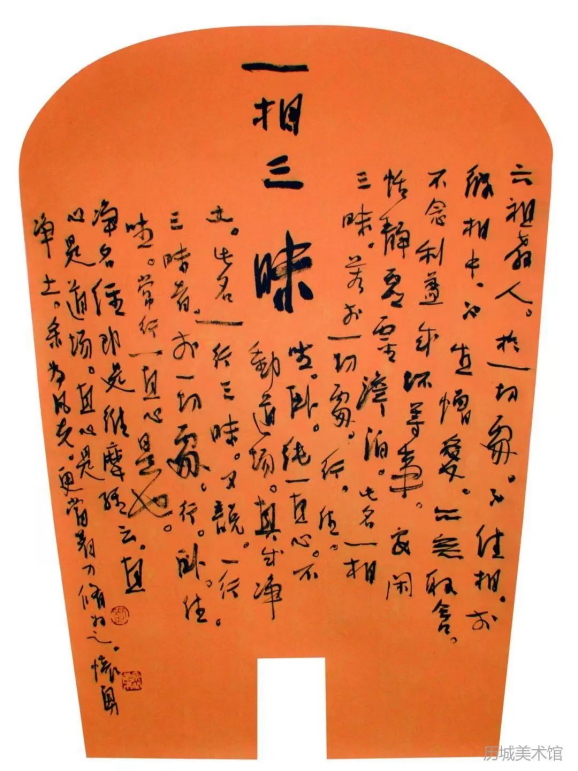 一相三昧
六祖教人。於一切處。不住相。於
彼相中。不生憎愛。亦無取舍。
不念利益成壞等事。安閑
恬靜虛澹泊。此名一相
三昧。若於一切處。行。住。
坐。卧。純一直心。不
動道場。真成淨
土。此名一行三昧。又説。一行
三昧者。於一切處。行。卧。住。
坐。常行一直心是也。
净名經即是維摩經云。直
心是道場。直心是
净土。余为凡夫。更當努力脩之。懷
历城美术馆